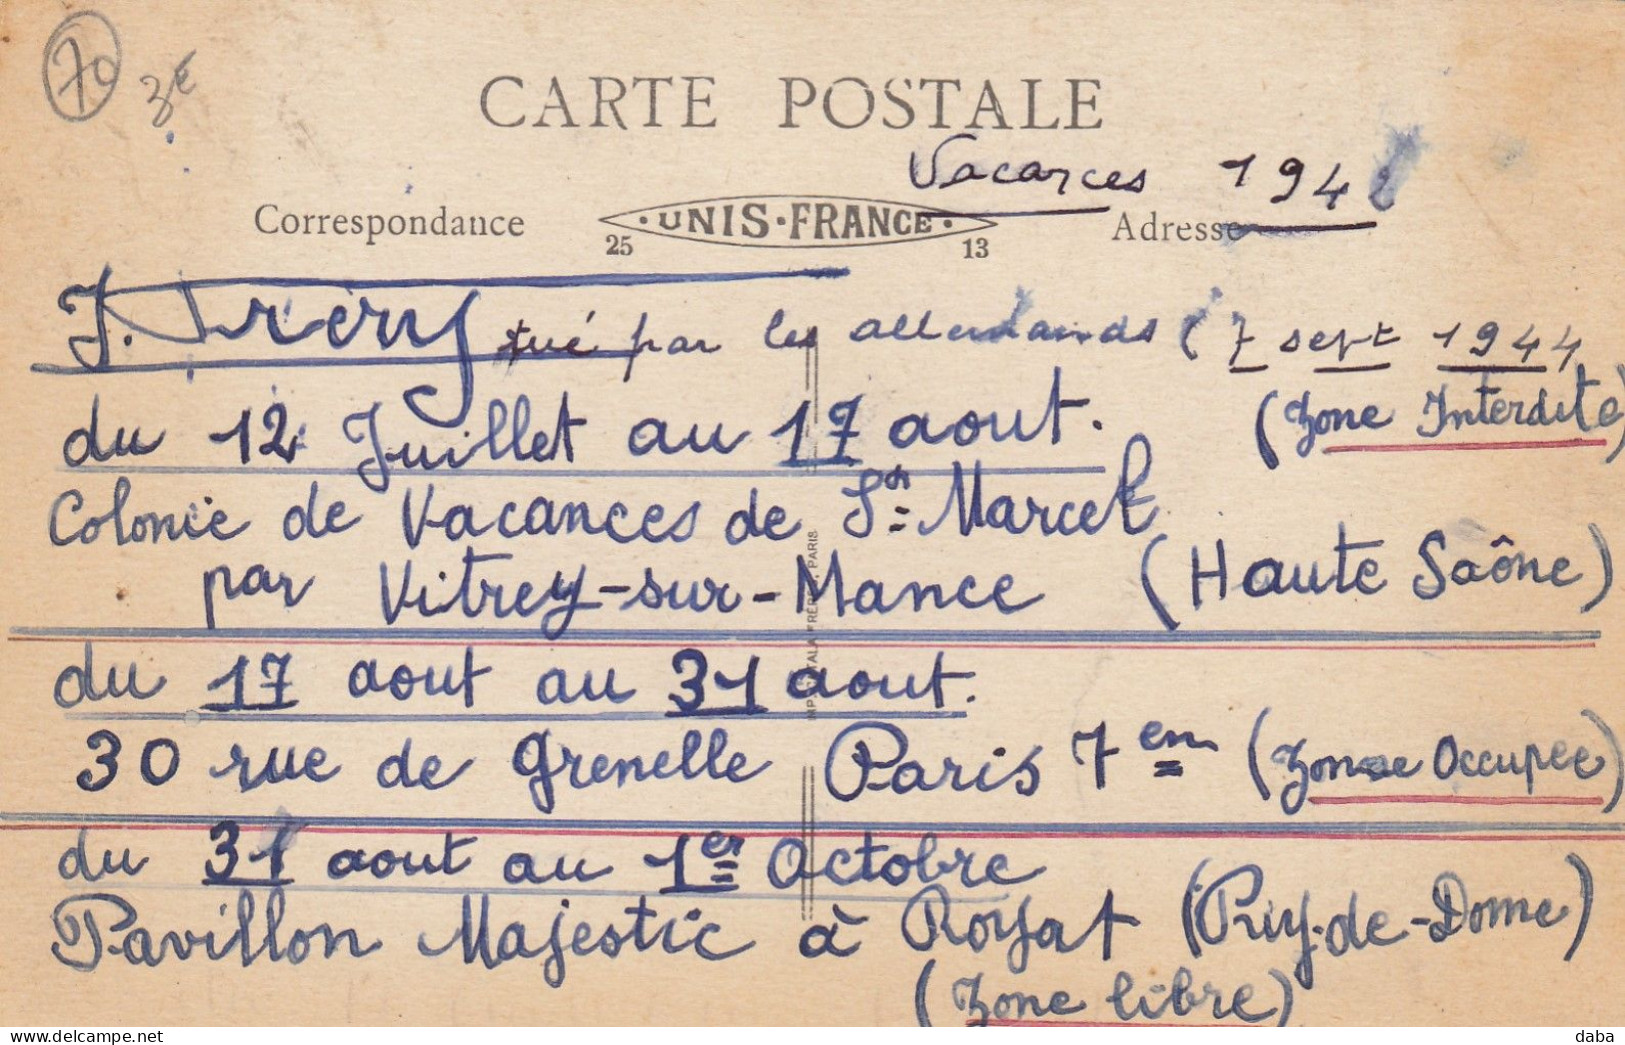 70
3€
CARTE POSTALE
Vacances 194
Correspondance
UNIS-FRANCE
Adresse
25 13
tué par les allemands (7 sept 1944
du 12 Juillet au 17 aout. (Zone Interdite)
Colonie de Vacances de St-Marcel
par Vitrey-sur-Mance (Haute Saône)
du 17 aout au 31 aout.
30 rue de Grenelle Paris 7em (Zone Occupée)
du 31 aout au 1er Octobre
Pavillon Majestic à Royat (Puy-de-Dome)
(Zone libre)
PARIS
daba